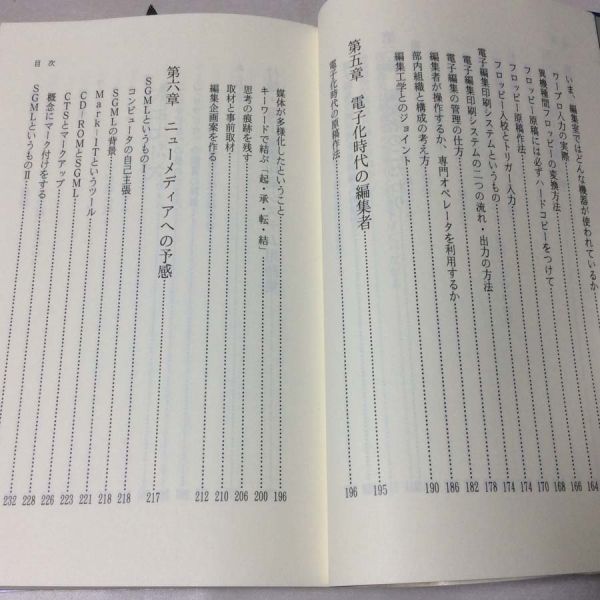 いま、編集室ではどんな機器が使われているか
ワープロ入力の実際 164
異機種間フロッピーの変換方法 166
フロッピー原稿には必ずハードコピーをつけて 168
フロッピー原稿作法 170
フロッピー入校とトリガー入力 174
電子編集印刷システムというもの 174
電子編集印刷システムの二つの流れ・出力の方法 174
電子編集の管理の仕方 178
編集者が操作するか、専門オペレータを利用するか 182
部内組織と構成の考え方 186
編集工学とのジョイント 190
第五章 電子化時代の編集者 195
電子化時代の原稿作法 196
媒体が多様化したということ 196
キーワードで結ぶ「起・承・転・結」 200
思考の痕跡を残す 206
取材と事前取材 210
編集企画案を作る 212
第六章 ニューメディアへの予感
SGMLというものⅠ 217
コンピュータの自己主張 218
SGMLの背景 218
Mark―ITというツール 221
CD―ROMとSGML 223
CTSとマークアップ 226
概念にマーク付けをする 228
SGMLというものⅡ 232
目次